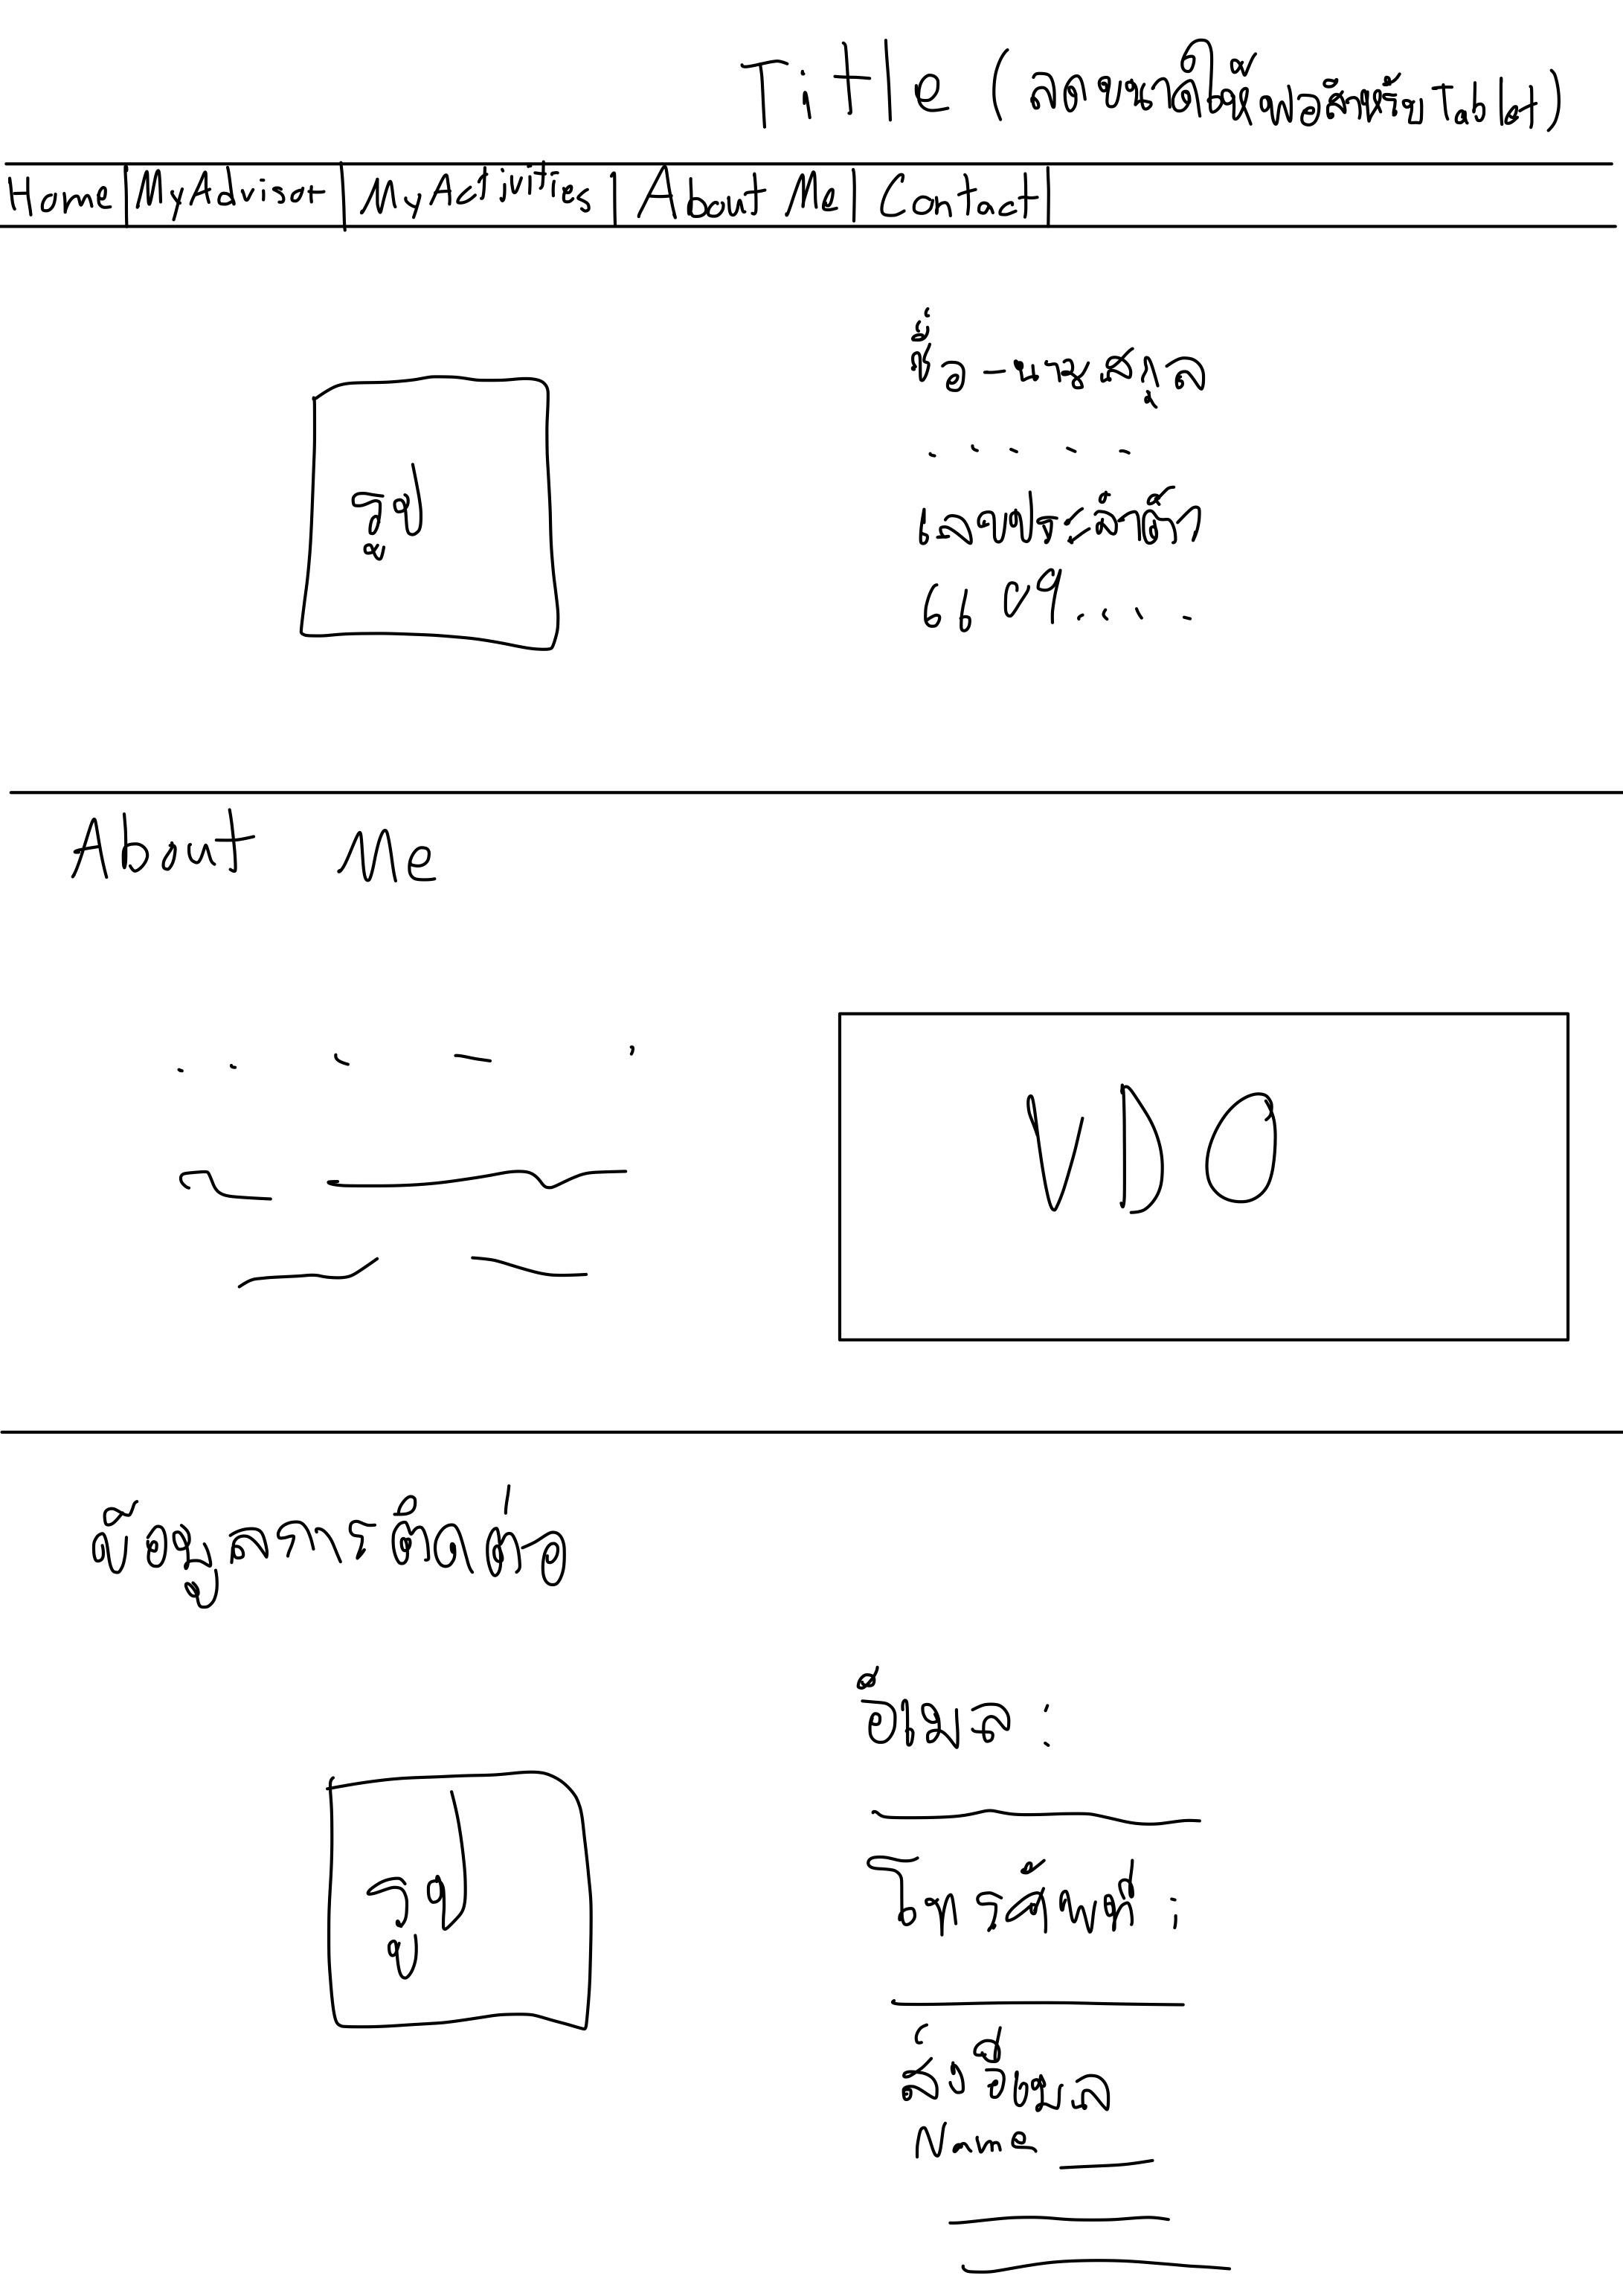 Title (ลดขนาดให้พอสำหรับ Tablet)
Home | My Advisor | My Activities | About Me | Contact |
ชื่อ - นามสกุล
รูป
เลขประจำตัว
6609....
About Me
VDO
ข้อมูลการติดต่อ
อีเมล :
รูป
โทรศัพท์ :
ส่งอีเมล
Name